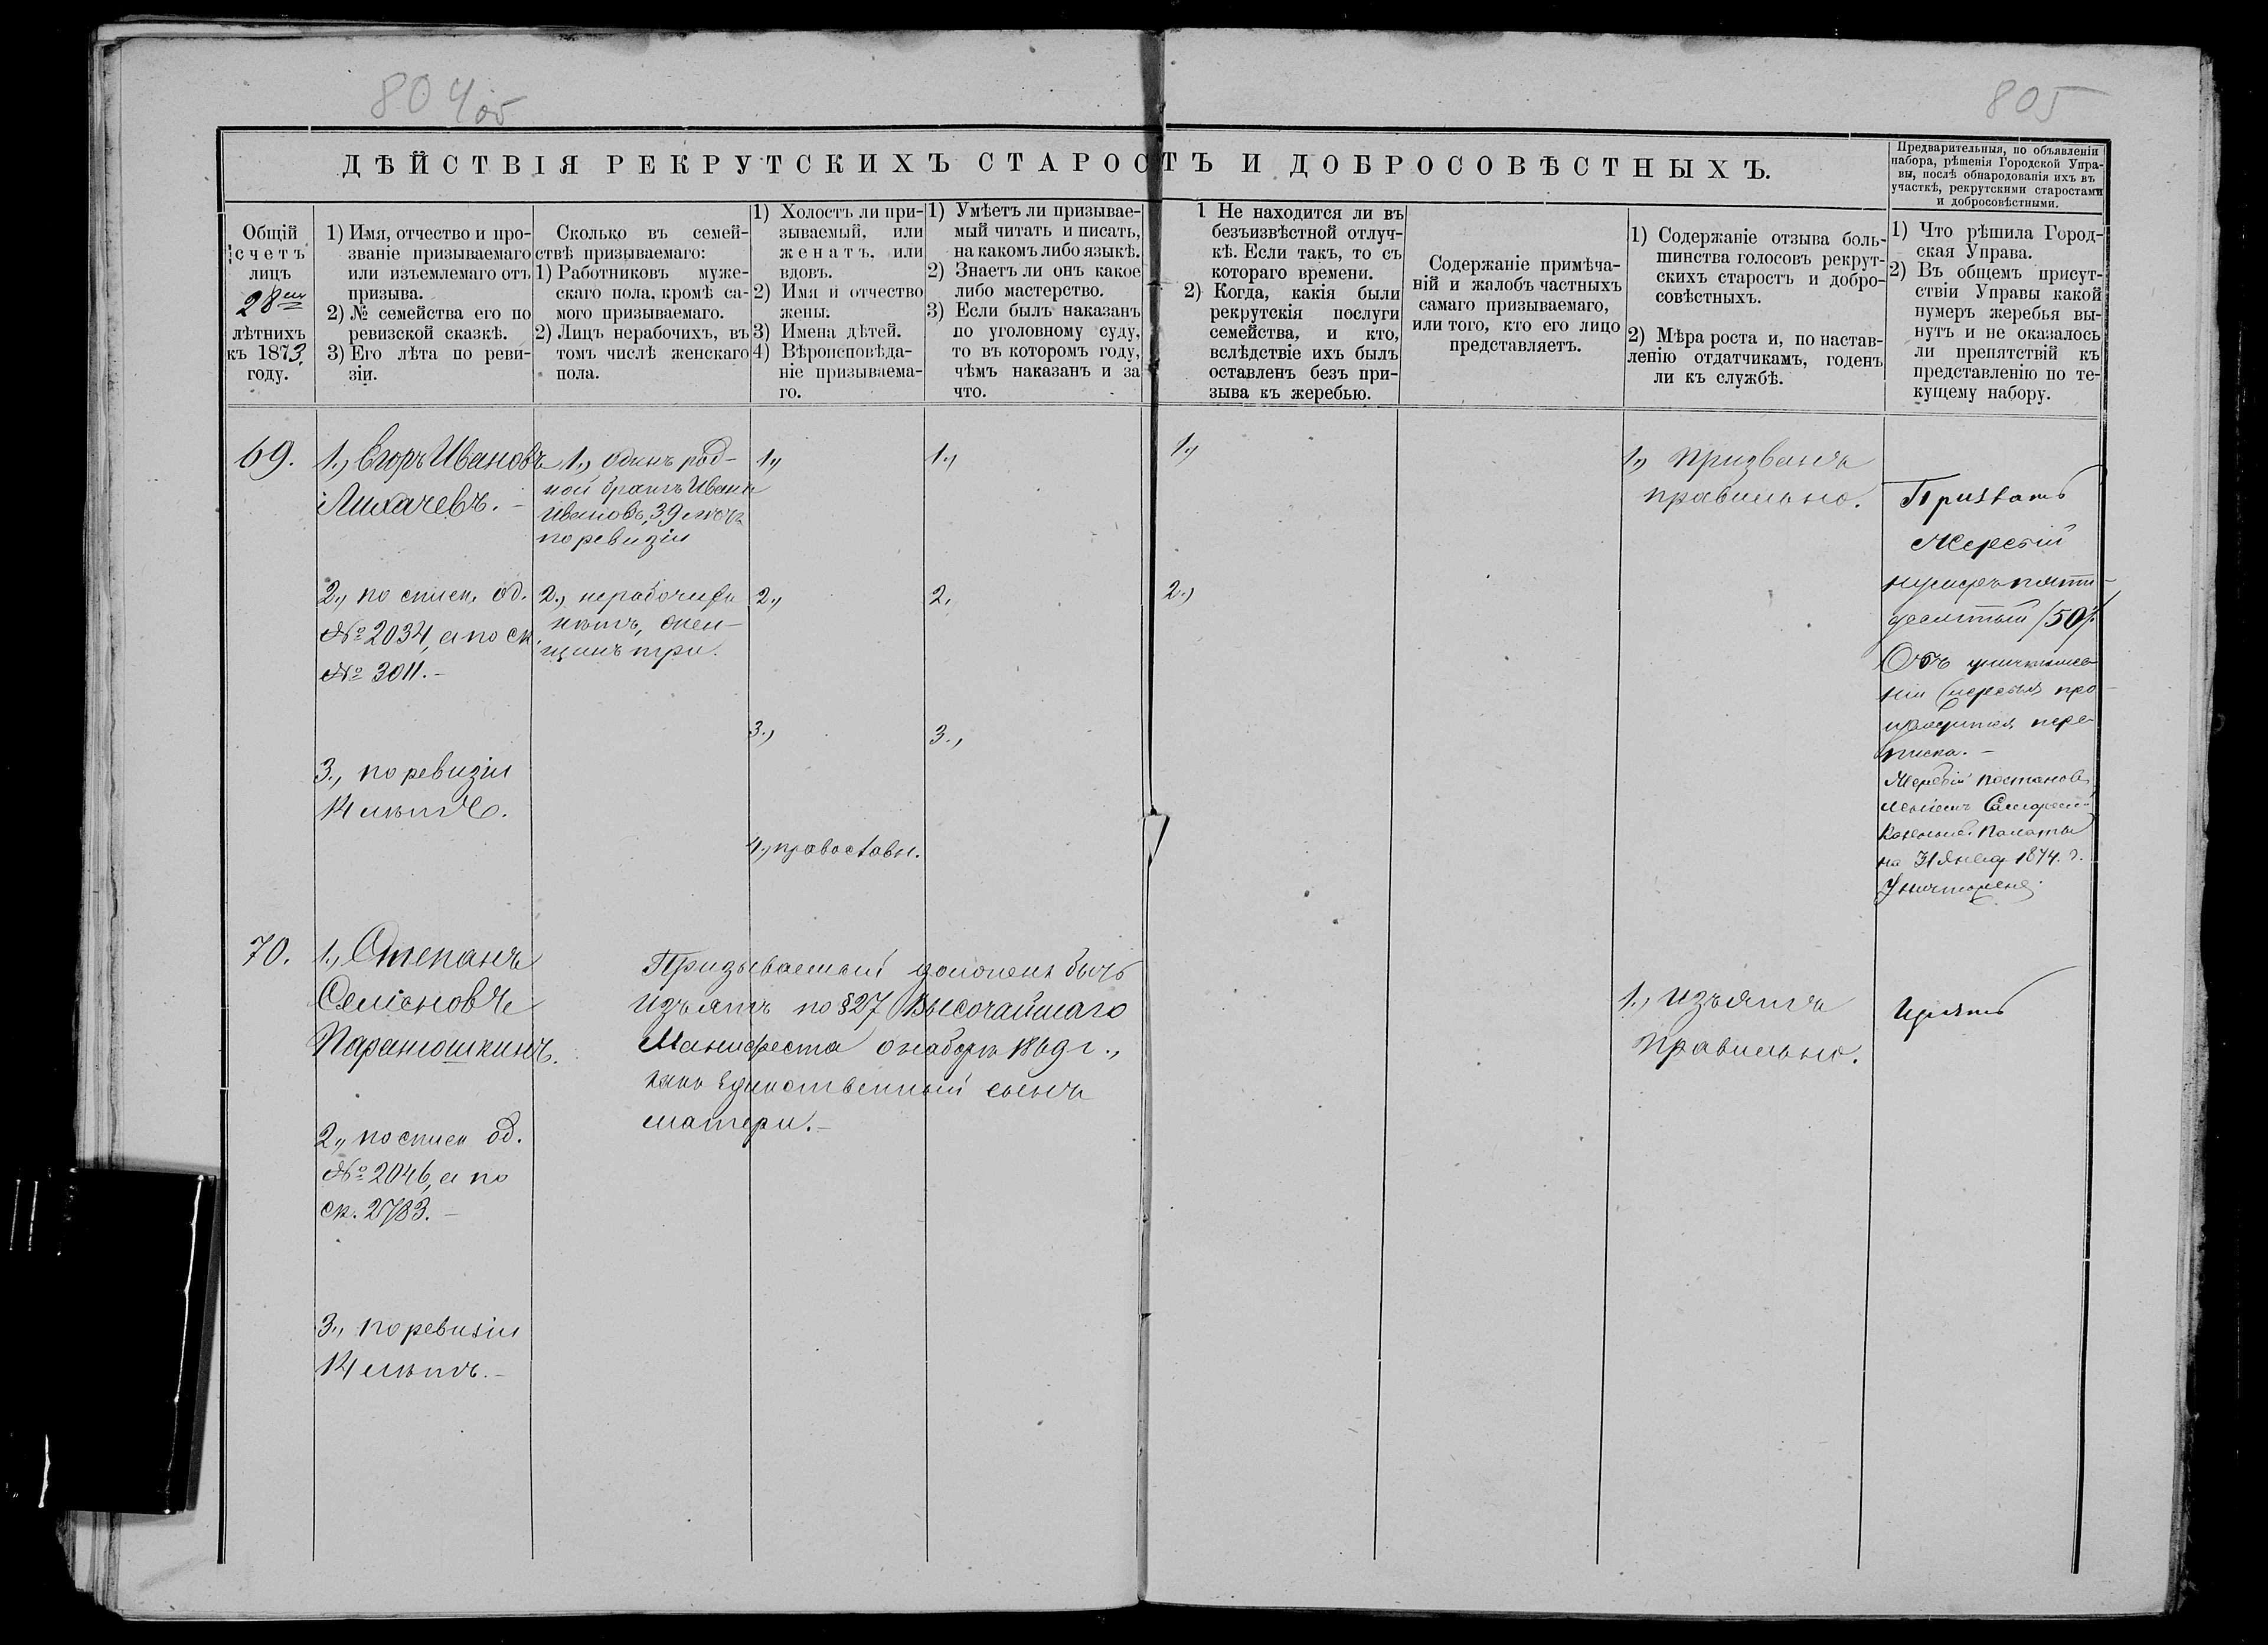 804об
805
ДѢЙСТВІЯ РЕКРУТСКИХЪ СТАРОСТЪ И ДОБРОСОВѢСТНЫХЪ.
Предварительныя, по объявленіи
набора, рѣшенія Городской Упра-
вы, послѣ обнародованія ихъ въ
участкѣ, рекрутскими старостами
и добросовѣстными.
Общій
счетъ
лицъ
28ми
лѣтнихъ
къ 1873
году.
1) Имя, отчество и про-
званіе призываемаго
или изъемлемаго отъ
призыва.
2) № семейства его по
ревизской сказкѣ.
3) Его лѣта по реви-
зіи.
Сколько въ семей-
ствѣ призываемаго:
1) Работниковъ муже-
скаго пола, кромѣ са-
мого призываемаго.
2) Лицъ нерабочихъ, въ
томъ числѣ женскаго
пола.
1) Холостъ ли при-
зываемый, или
женатъ, или
вдовъ.
2) Имя и отчество
жены.
3) Имена дѣтей.
4) Вѣроисповѣда-
ніе призываема-
го.
1) Умѣетъ ли призывае-
мый читать и писать,
на какомъ либо языкѣ.
2) Знаетъ ли онъ какое
либо мастерство.
3) Если былъ наказанъ
по уголовному суду,
то въ которомъ году,
чѣмъ наказанъ и за
что.
1 Не находится ли въ
безъизвѣстной отлуч-
кѣ. Если такъ, то съ
котораго времени.
2) Когда, какія были
рекрутскія послуги
семейства, и кто,
вслѣдствіе ихъ былъ
оставленъ безъ при-
зыва къ жеребью.
Содержаніе примѣча-
ній и жалобъ частныхъ
самаго призываемаго,
или того, кто его лицо
представляетъ.
1) Содержаніе отзыва боль-
шинства голосовъ рекрут-
скихъ старостъ и добро-
совѣстныхъ.
2) Мѣра роста и, по настав-
ленію отдатчикамъ, годенъ
ли къ службѣ.
1) Что рѣшила Город-
ская Управа.
2) Въ общемъ присут-
ствіи Управы какой
нумеръ жеребья вы-
нутъ и не оказалось
ли препятствій къ
представленію по те-
кущему набору.
69.
1., Егоръ Ивановъ
Лихачевъ. -
2., по списк. од.
№ 2034, а по ск.
№ 3011. -
3., по ревизіи
14 лѣтъ.
1., одинъ род-
ной братъ Иванъ
Ивановъ, 39 лѣтъ
по ревизіи
2., нерабочихъ
нѣтъ, жен-
щинъ три.
1.,
2.,
3.,
4., православн.
1.,
2.
3.,
1.,
2.,
1., Призванъ
правильно.
Призвать
Жеребій
нумеръ пяти-
десятый /50/.
Объ уничтоже-
ніи жеребья про-
изводится пере-
писка. -
Жеребій постанов-
леніемъ
Казенной Палаты
на 31 Янв. 1874. г.
Уничтоженъ.
70.
1., Степанъ
Семеновъ
Парамошкинъ.
2., по списк од.
№ 2046, а по
ск. 2783. -
3., по ревизіи
14 лѣтъ. -
Призываемый долженъ быть
изъятъ по § 27 Высочайшаго
Манифеста о наборѣ 1869 г.,
какъ единственный сынъ
матери. -
1., изъятъ
правильно.
Изъять